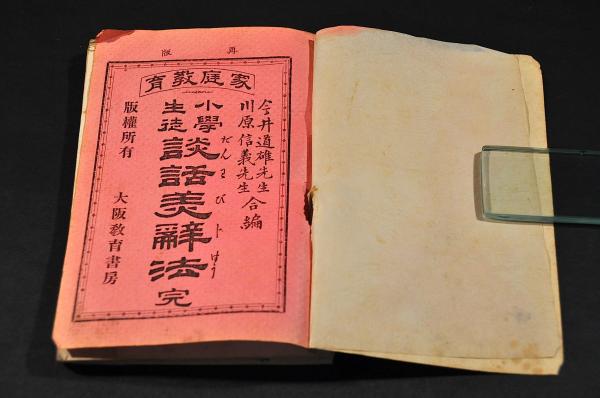 再版
家庭敎育
今井道雄先生
川原信義先生
合編
小學
生徒
談話美辭法 完
だんわびじはう
版權所有 大阪敎育書房